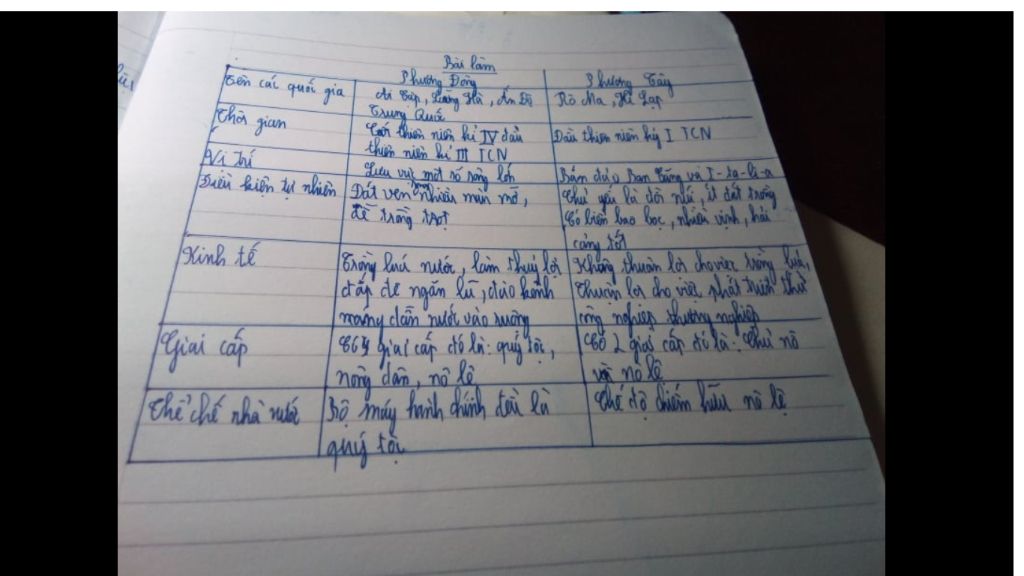 Bài làm
Phương Đông
Phương Tây
Tên các quốc gia
Ai Cập, Lưỡng Hà, Ấn Độ
Trung Quốc
Rô Ma, Hi Lạp
Thời gian
thiên niên kỉ IV đầu
thiên niên kỉ III TCN
Đầu thiên niên kỷ I TCN
Vị trí
Lưu vực một số sông lớn
Bán đảo Ban Căng và I-ta-li-a
Điều kiện tự nhiên
Đất ven sông nhiều màu mỡ,
dễ trồng trọt
Chủ yếu là đồi núi, ít đất trồng
Có biển bao bọc, nhiều vịnh, hải
cảng tốt
Kinh tế
Trồng lúa nước, làm thuỷ lợi
đắp đê ngăn lũ, đào kênh
máng dẫn nước vào ruộng
Không thuận lợi cho việc trồng lúa,
thuận lợi cho việc phát triển thủ
công nghiệp, thương nghiệp
Giai cấp
giai cấp đó là: quý tộc,
nông dân, nô lệ
Có 2 giai cấp đó là: Chủ nô
và nô lệ
Thể chế nhà nước
Bộ máy hành chính đều là
quý tộc
Chế độ chiếm hữu nô lệ